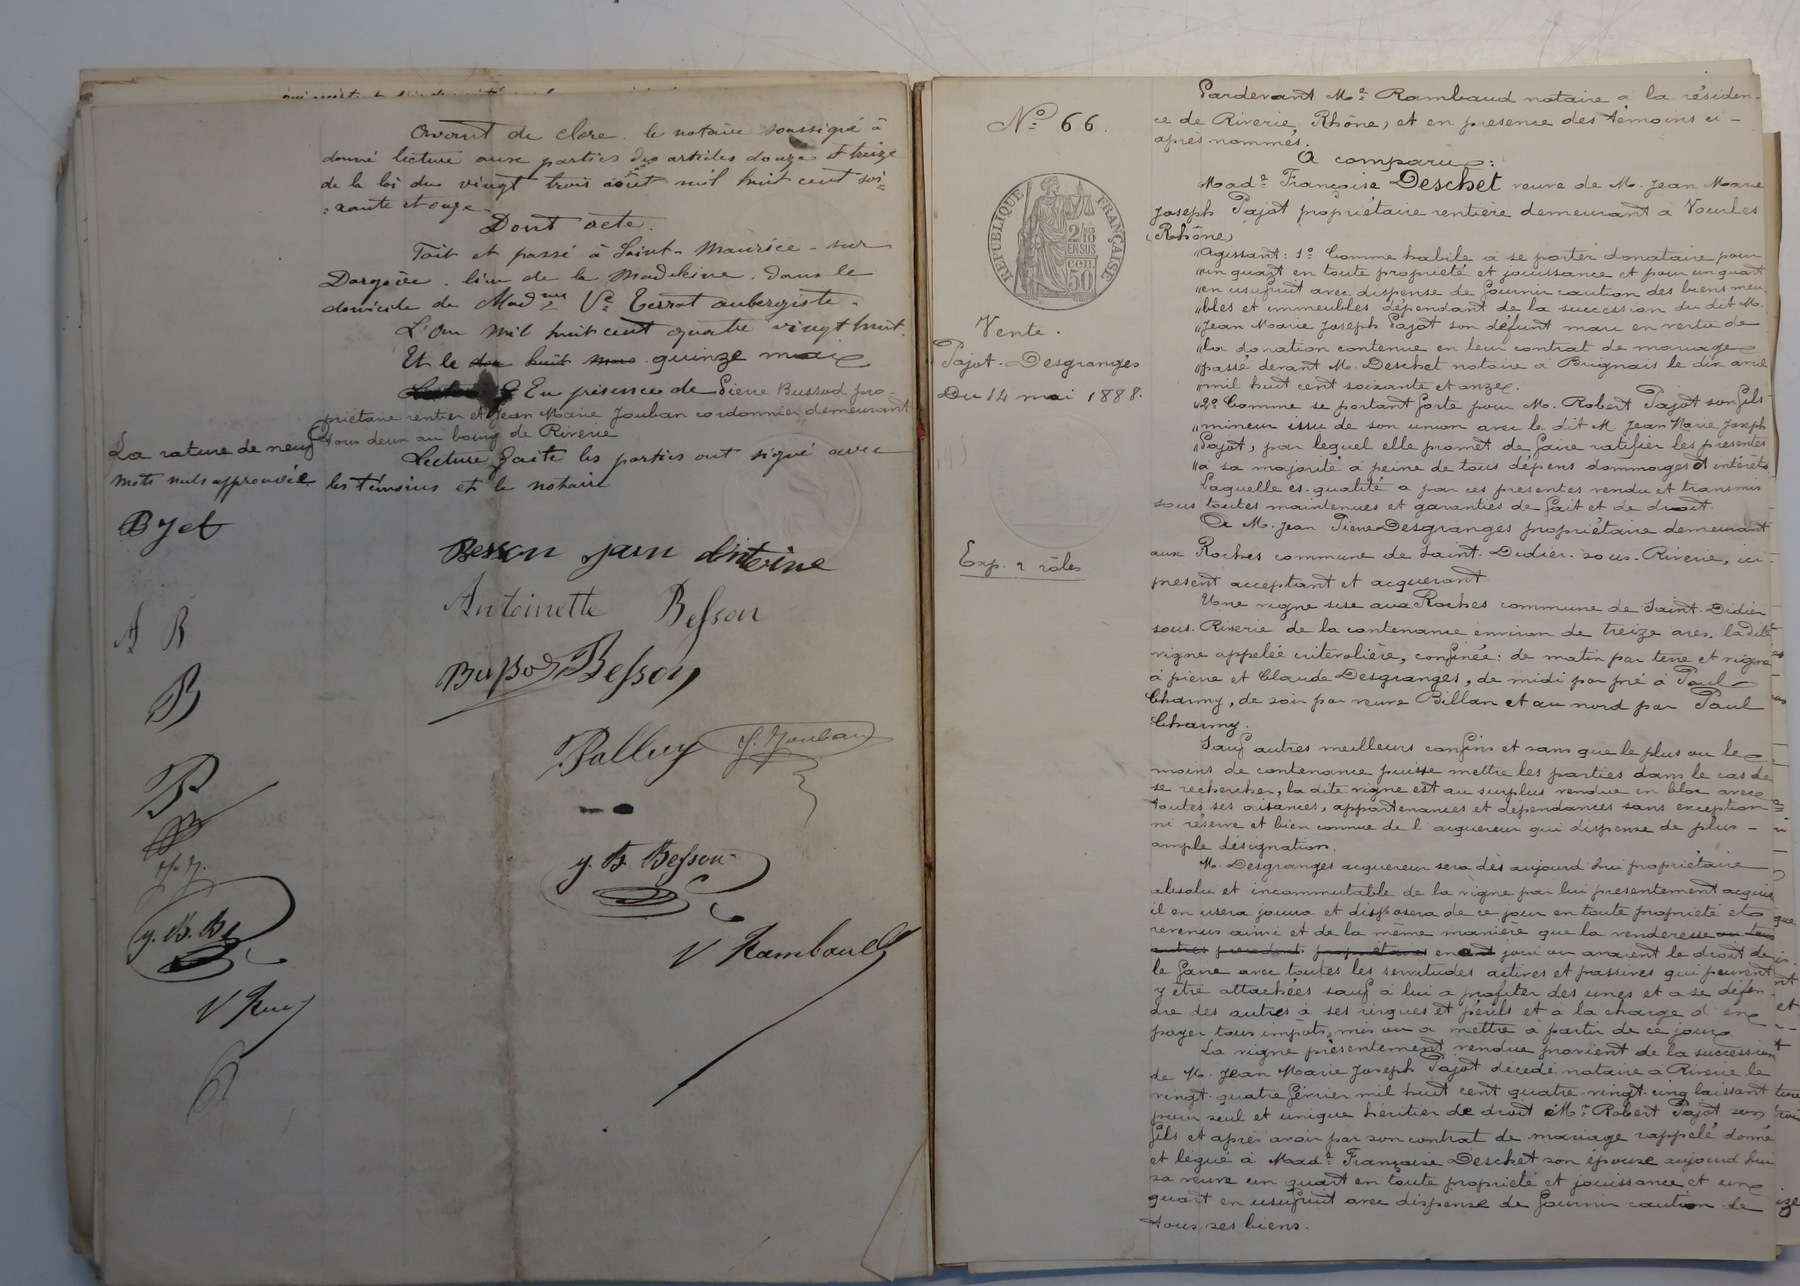 Avant de clore le notaire soussigné à
donné lecture aux parties des articles douze & treize
de la loi du vingt trois août mil huit cent soi=
=xante et onze.
Dont acte.
Fait et passé à Saint-Maurice-sur
Dargoire. lieu de la Madeleine. dans le
domicile de Mad me Ve Terrat aubergiste.
L'An mil huit cent quatre vingt huit.
Et le dix huit mars quinze mai
En présence de Pierre Bussod pro-
priétaire rentier et Jean Marie Jouban cordonnier demeurant
tous deux au bourg de Riverie
La rature de neuf
mots nuls approuvée
Lecture faite les parties ont signé avec
les témoins et le notaire
Byet
Besson jean Antoine
Antoinette Besson
A B
Bussod Besson
B
Palluy J. Jouban
P
J. J.
y. B. Besson
y. B. Be
V Rambaud
V Ram
N° 66.
RÉPUBLIQUE FRANÇAISE
2/10
EN SUS
50 cen
Vente.
Pajot-Desgranges
Du 14 mai 1888.
Exp. 2 rôles
Pardevant Me Rambaud notaire à la résiden-
ce de Riverie, Rhône, et en présence des témoins ci-
après nommés.
A comparu:
Made Françoise Deschet veuve de M. Jean Marie
Joseph Pajot propriétaire rentière demeurant à Vourles
(Rhône)
"Agissant: 1° Comme habile à se porter donataire pour
"un quart en toute propriété et jouissance et pour un quart
"en usufruit avec dispense de fournir caution des biens meu-
"bles et immeubles dépendant de la succession du dit M.
"Jean Marie Joseph Pajot son défunt mari en vertu de
"la donation contenue en leur contrat de mariage
"passé devant M. Deschet notaire à Brignais le dix avril
"mil huit cent soixante et onze.
"2° Comme se portant forte pour M. Robert Pajot son fils
"mineur issu de son union avec le dit M Jean Marie Joseph
"Pajot, par lequel elle promet de faire ratifier les présentes
"à sa majorité à peine de tous dépens dommages et intérêts.
Laquelle es-qualité a par ces présentes vendu et transmis
sous toutes maintenues et garanties de fait et de droit.
A M. Jean Pierre Desgranges propriétaire demeurant
aux Roches commune de Saint-Didier-sous-Riverie, ici
présent acceptant et acquérant
Une vigne sise aux Roches commune de Saint-Didier
sous-Riverie de la contenance environ de treize ares, ladite
vigne appelée, confinée: de matin par terre et vigne
à pierre et Claude Desgranges, de midi par pré à Paul
Charmy, de soir par veuve Billan et au nord par Paul
Charmy.
Sauf autres meilleurs confins et sans que le plus ou le
moins de contenance puisse mettre les parties dans le cas de
se rechercher, la dite vigne est au surplus vendue en bloc avec
toutes ses aisances, appartenances et dépendances sans exception
ni réserve et bien connue de l'acquéreur qui dispense de plus-
ample désignation.
M. Desgranges acquéreur sera dès aujourd'hui propriétaire
absolu et incommutable de la vigne par lui présentement acquise
il en usera jouira et disposera de ce jour en toute propriété et
revenus ainsi et de la même manière que la venderesse ou tous
autres precedents propriétaires en a joui ou avaient le droit de
le faire avec toutes les servitudes actives et passives qui peuvent
y être attachées sauf à lui à profiter des unes et à se défen-
dre des autres à ses risques et périls et à la charge d'en
payer tous impôts mis ou à mettre à partir de ce jour
La vigne présentement vendue provient de la succession
de M. Jean Marie Joseph Pajot décédé notaire à Riverie le
vingt-quatre février mil huit cent quatre-vingt-cinq laissant
pour seul et unique héritier de droit Mr Robert Pajot son
fils et après avoir par son contrat de mariage rappelé donné
et légué à Made Françoise Deschet son épouse aujourd'hui
sa veuve un quart en toute propriété et jouissance et un
quart en usufruit avec dispense de fournir caution de
tous ses biens.